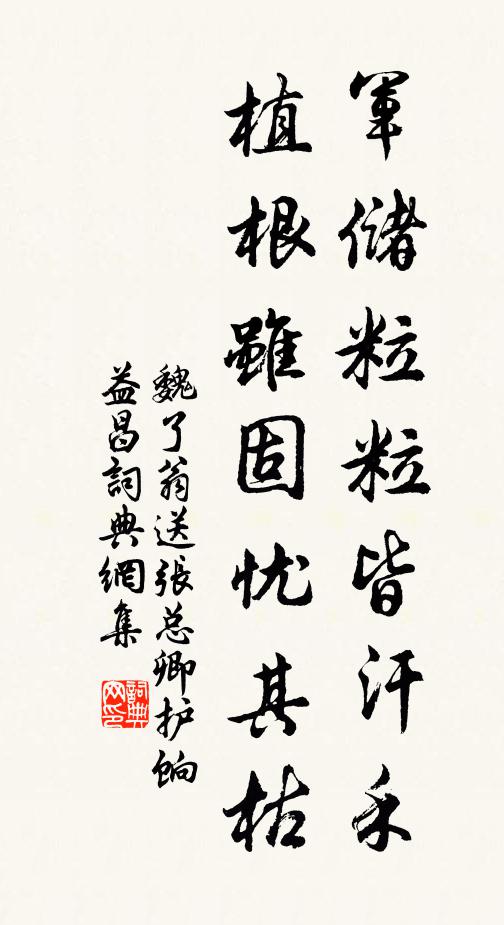 軍儲粒粒皆汗禾
植根雖固忧其枯
魏了翁送張总卿护餉
益昌詞典網集
詞典网印